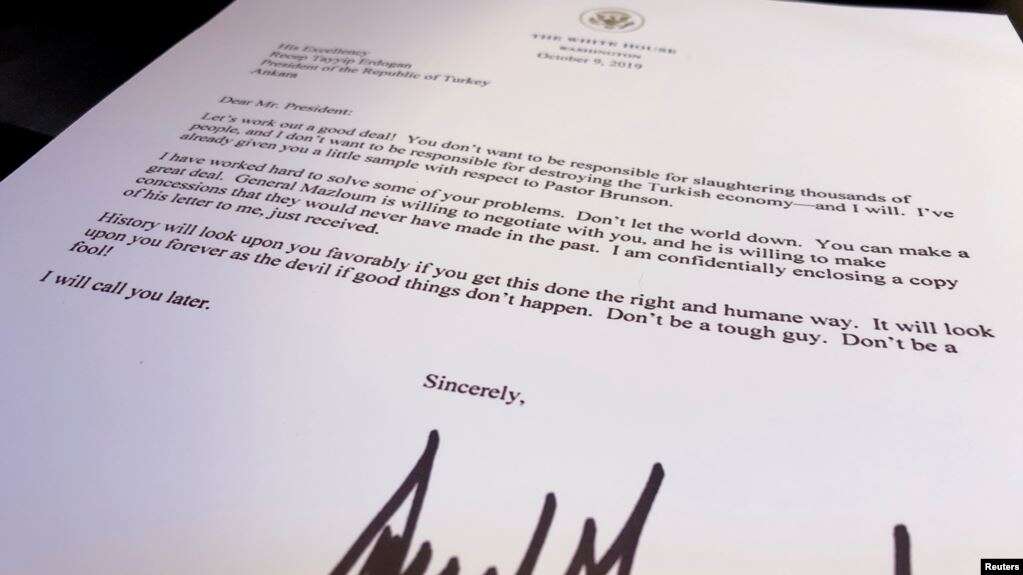 THE WHITE HOUSE
WASHINGTON
October 9, 2019
His Excellency
Recep Tayyip Erdogan
President of the Republic of Turkey
Ankara
Dear Mr. President:
Let's work out a good deal! You don't want to be responsible for slaughtering thousands of
people, and I don't want to be responsible for destroying the Turkish economy—and I will. I've
already given you a little sample with respect to Pastor Brunson.
I have worked hard to solve some of your problems. Don't let the world down. You can make a
great deal. General Mazloum is willing to negotiate with you, and he is willing to make
concessions that they would never have made in the past. I am confidentially enclosing a copy
of his letter to me, just received.
History will look upon you favorably if you get this done the right and humane way. It will look
upon you forever as the devil if good things don't happen. Don't be a tough guy. Don't be a
fool!
I will call you later.
Sincerely,
Reuters